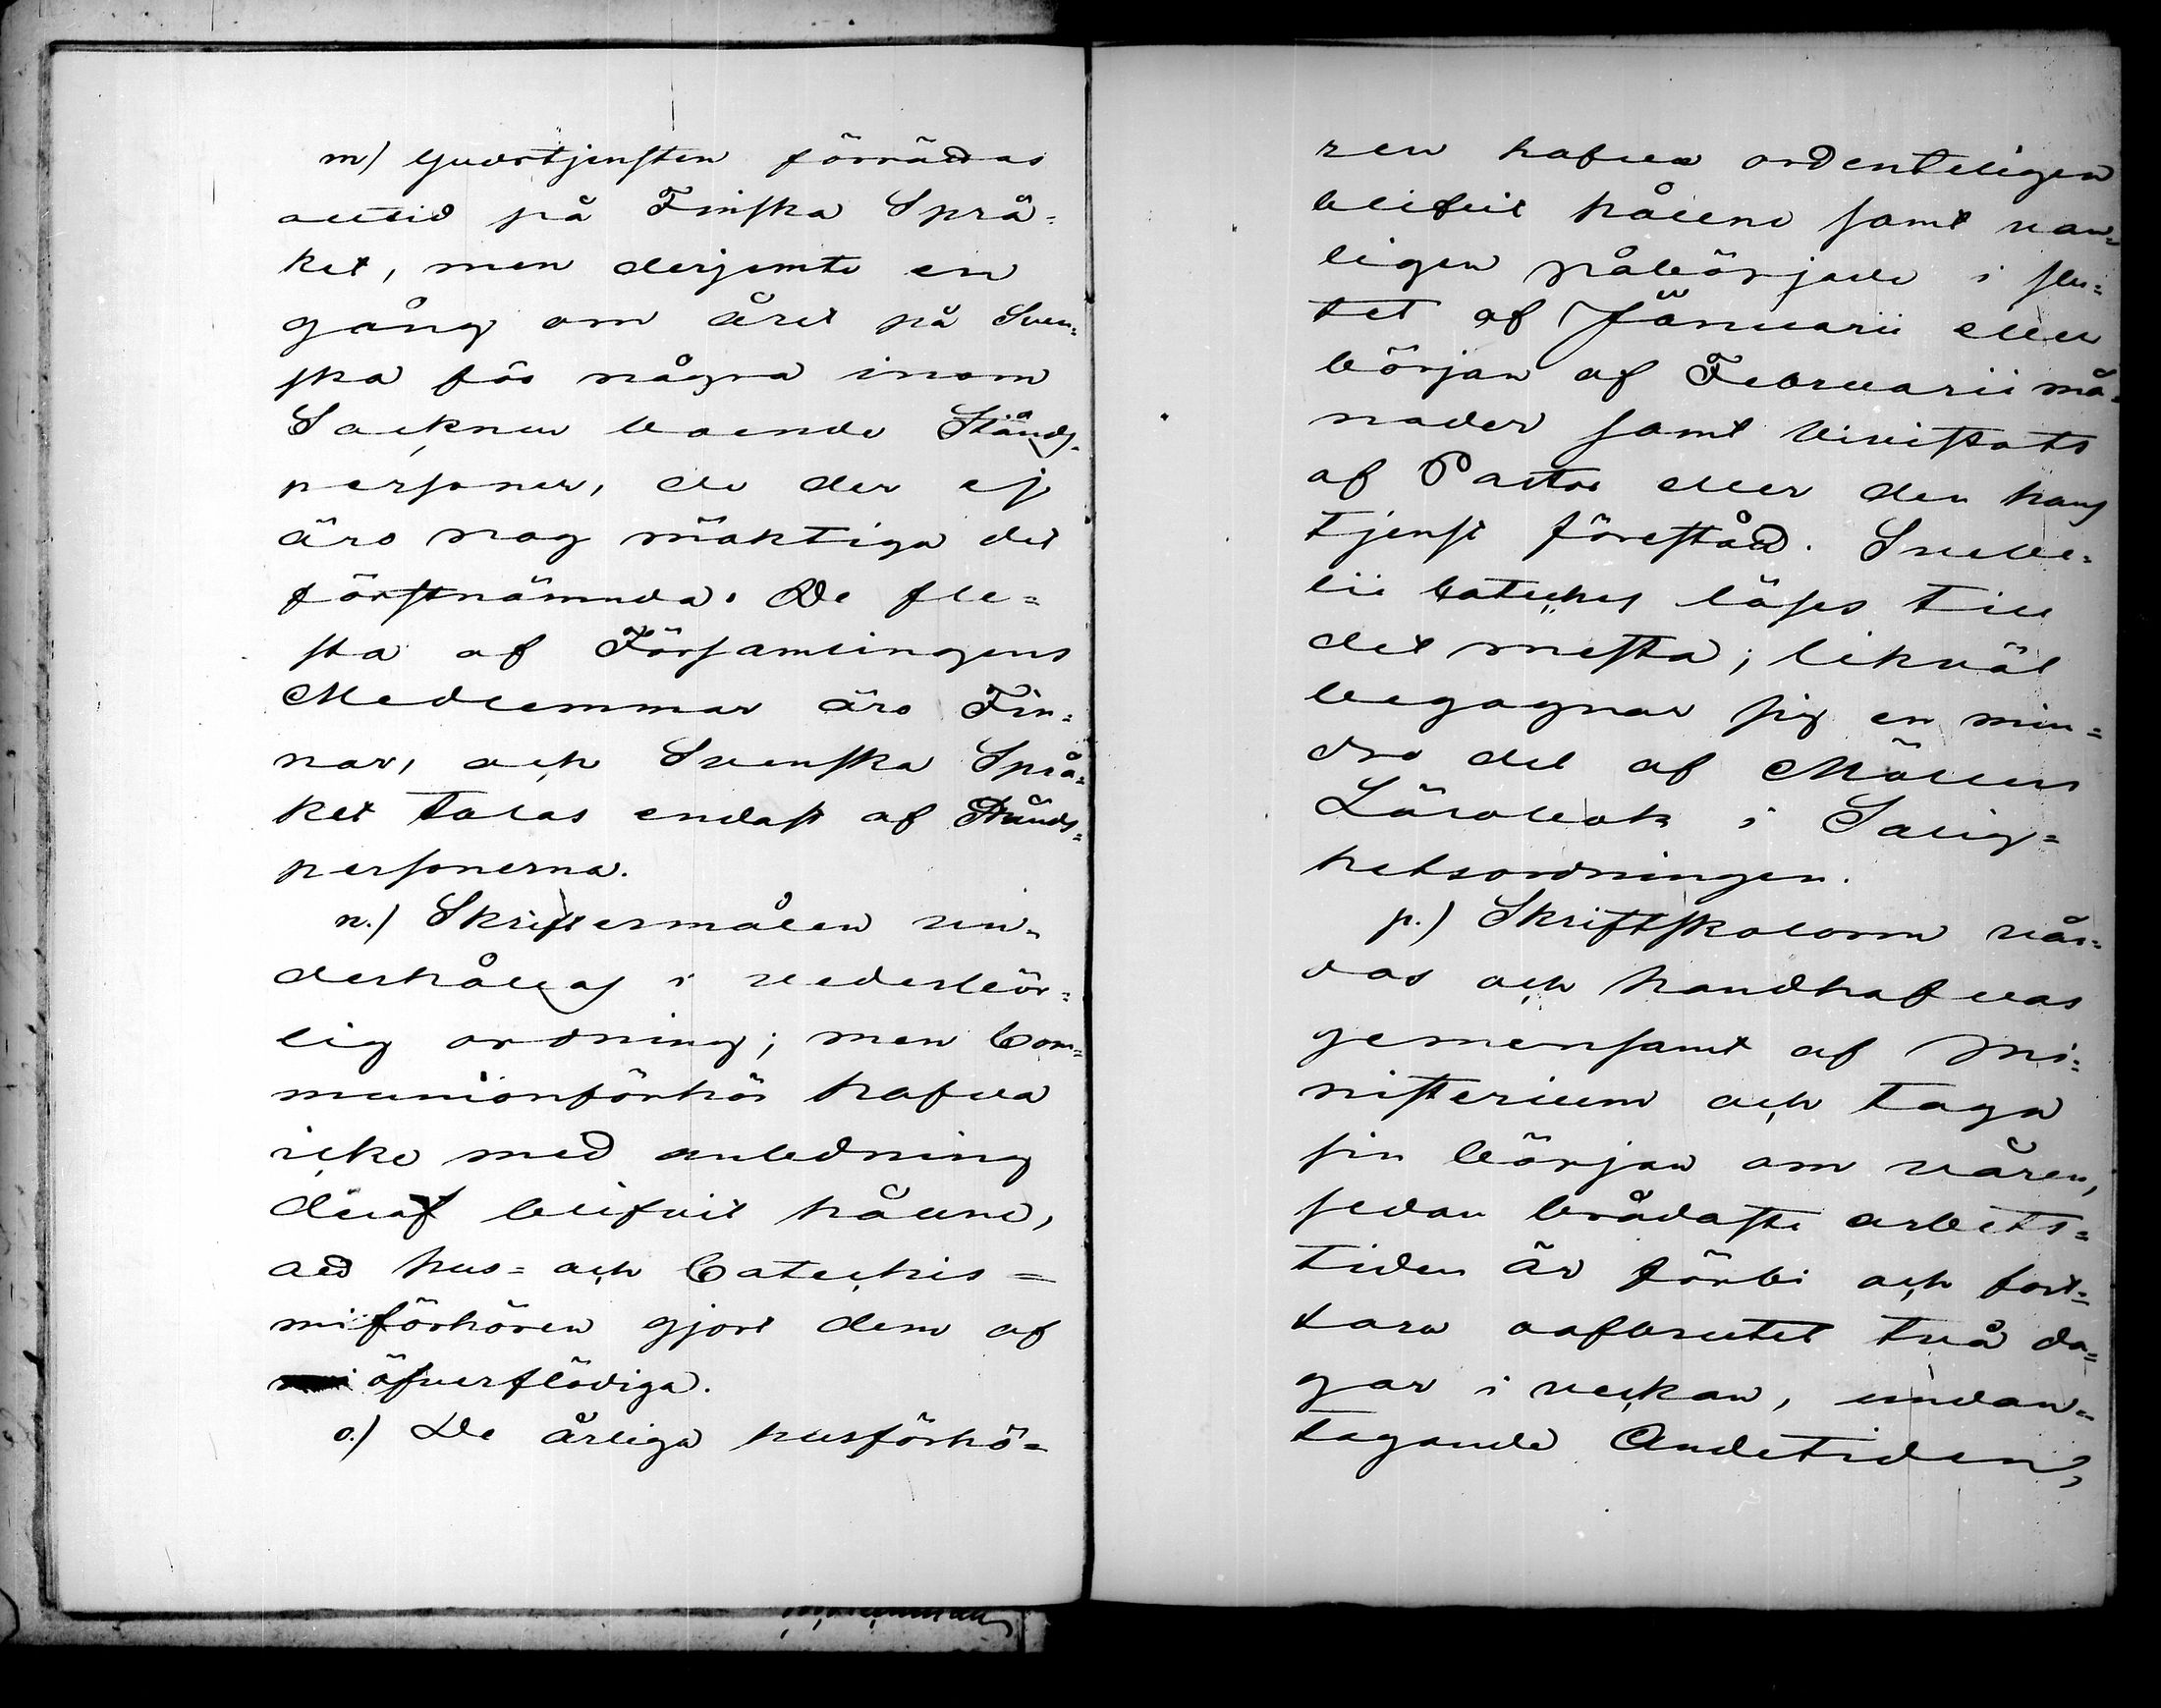 m) Gudstjensten förrättas
alltid på Finska Språ=
ket, men derjemte en
gång om året på Sven=
ska för några inom
Socknen boende Stånds=
personer, de der ej
äro nog mäktiga det
förstnämnda. De fle=
sta af Församlingens
Medlemmar äro Fin=
nar, och Svenska Språ=
ket talas endast af Stånds=
personerna.
n.) Skriftermålen un=
derhållas i vederbör=
lig ordning; men Com=
munionförhör hafva
icke med anledning
deraf blifvit hållne,
att hus= och Catechis=
miförhören gjort dem af
öfverflödiga.
o.) De årliga husförhö=
ren hafva ordenteligen
blifvit hållne samt van=
ligen påbörjade i slu=
tet af Januarii eller
början af Februarii må=
nader samt bivistats
af Pastor eller den hans
tjenst förestått. Svebe=
lii Cateches läses till
det mesta; likväl
begagnar sig en min=
dre del af Möllers
Lärobok i Salig=
hetsordningen.
p.) Skriftskolorna vår=
das och handhafvas
gemensamt af Mi=
nisterium och taga
sin början om våren,
sedan brådaste arbets=
tiden är förbi och fort=
fara oafbrutet två da=
gar i veckan, undan=
tagande Andetiden,